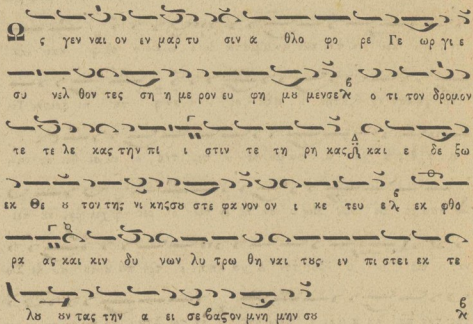 Ως γεν ναι ον εν μαρ τυ σιν α θλο φο ρε Γε ωρ γι ε
συ νελ θον τες ση η με ρον ευ φη μȣ μενσε ο τι τον δρομον
τε τε λε κας την πι ι στιν τε τη ρη κας και ε δε ξω
εκ Θε ȣ τον της νι κηςσȣ στε φα νον ον ι κε τευ ε εκ φθο
ρα ας και κιν δυ νων λυ τρω θη ναι τȣς εν πι στει εκ τε
λȣ ȣν τας την α ει σε βαςτον μνη μην σȣ